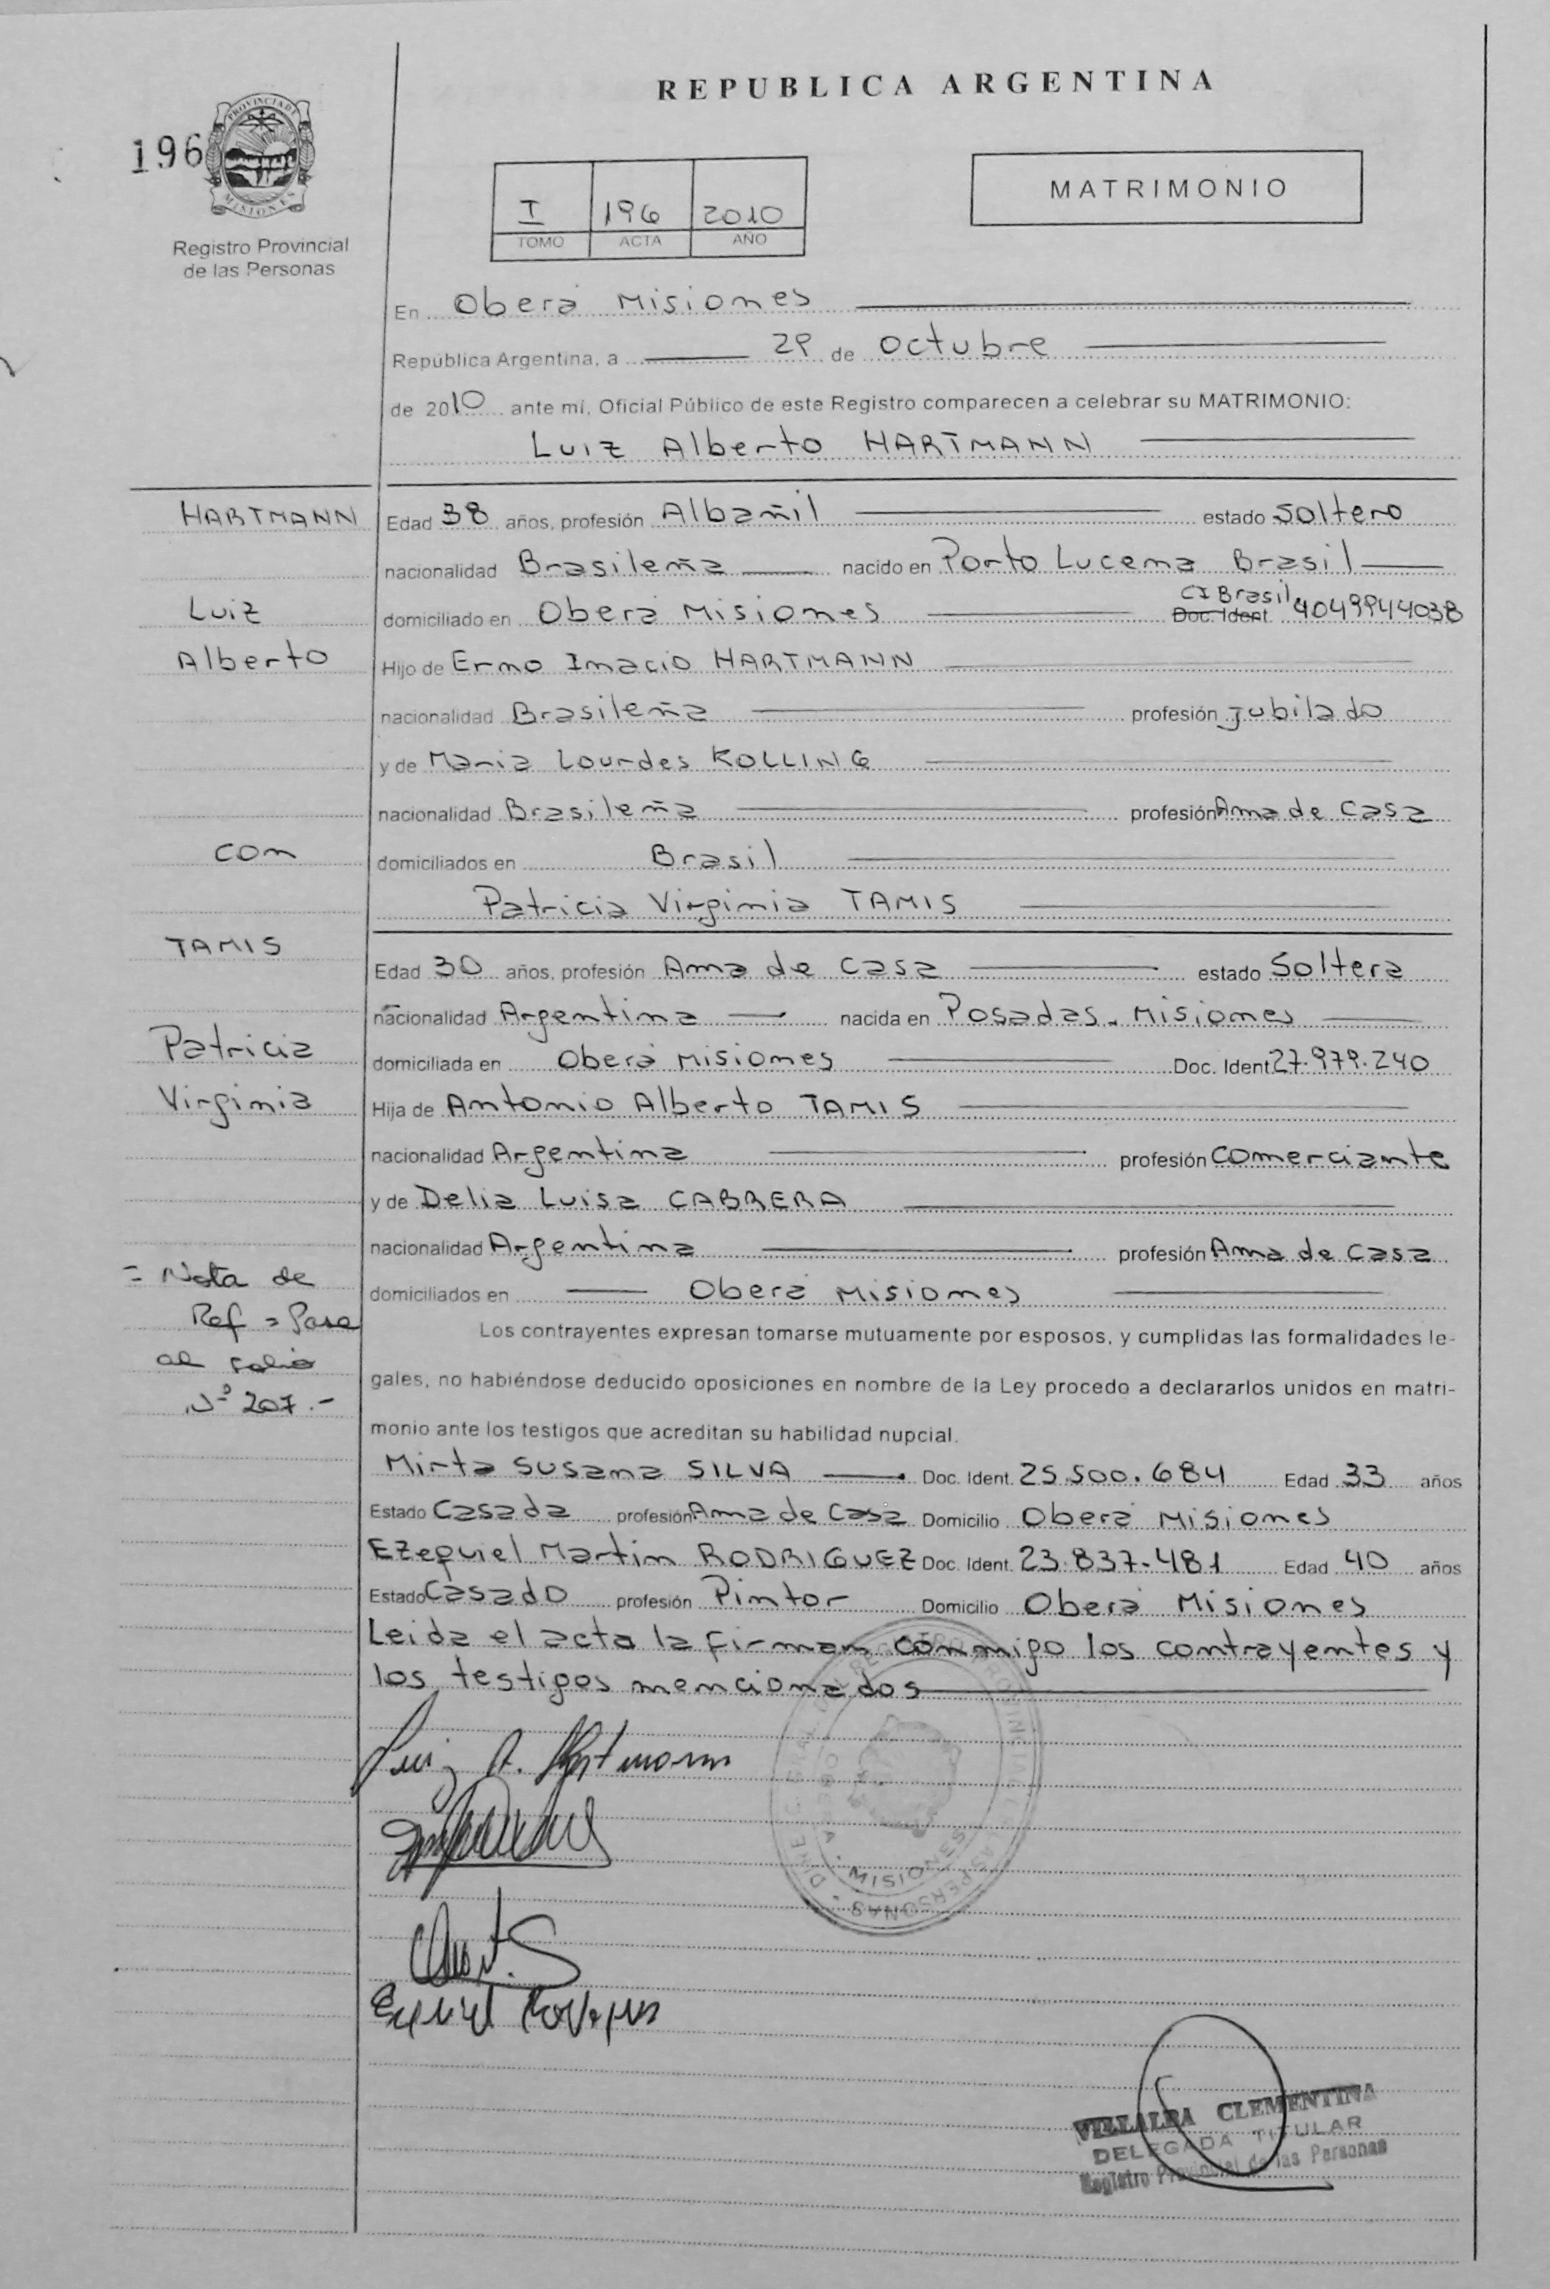 REPUBLICA ARGENTINA
196
PROVINCIA DE
MISIONES
Registro Provincial
de las Personas
I 196 2010
TOMO ACTA AÑO
MATRIMONIO
En Oberá Misiones
República Argentina, a 29 de octubre
de 2010 ante mí, Oficial Público de este Registro comparecen a celebrar su MATRIMONIO:
Luiz Alberto HARTMANN
HARTMANN
Luiz
Alberto
con
TAMIS
Patricia
Virginia
= Nota de
Ref = Pase
al folio
Nº 207.-
Edad 38 años, profesión Albañil estado Soltero
nacionalidad Brasileña nacido en Porto Lucena Brasil
domiciliado en Oberá Misiones CI Brasil Doc. Ident. 4049944038
Hijo de Ermo Inacio HARTMANN
nacionalidad Brasileña profesión jubilado
y de Maria Lourdes KOLLING
nacionalidad Brasileña profesión Ama de Casa
domiciliados en Brasil
Patricia Virginia TAMIS
Edad 30 años, profesión Ama de Casa estado Soltera
nacionalidad Argentina nacida en Posadas - Misiones
domiciliada en Oberá Misiones Doc. Ident. 27.979.240
Hija de Antonio Alberto TAMIS
nacionalidad Argentina profesión comerciante
y de Delia Luisa CABRERA
nacionalidad Argentina profesión Ama de Casa
domiciliados en Oberá Misiones
Los contrayentes expresan tomarse mutuamente por esposos, y cumplidas las formalidades le-
gales, no habiéndose deducido oposiciones en nombre de la Ley procedo a declararlos unidos en matri-
monio ante los testigos que acreditan su habilidad nupcial.
Mirta Susana SILVA Doc. Ident. 25.500.684 Edad 33 años
Estado Casada profesión Ama de Casa Domicilio Oberá Misiones
Ezequiel Martin RODRIGUEZ Doc. Ident. 23.837.481 Edad 40 años
Estado Casado profesión Pintor Domicilio Oberá Misiones
Leida el acta la firman conmigo los contrayentes y
los testigos mencionados
Luiz A. Hartmann
MISIONES
VILLALBA CLEMENTINA
DELEGADA TITULAR
Registro Provincial de las Personas